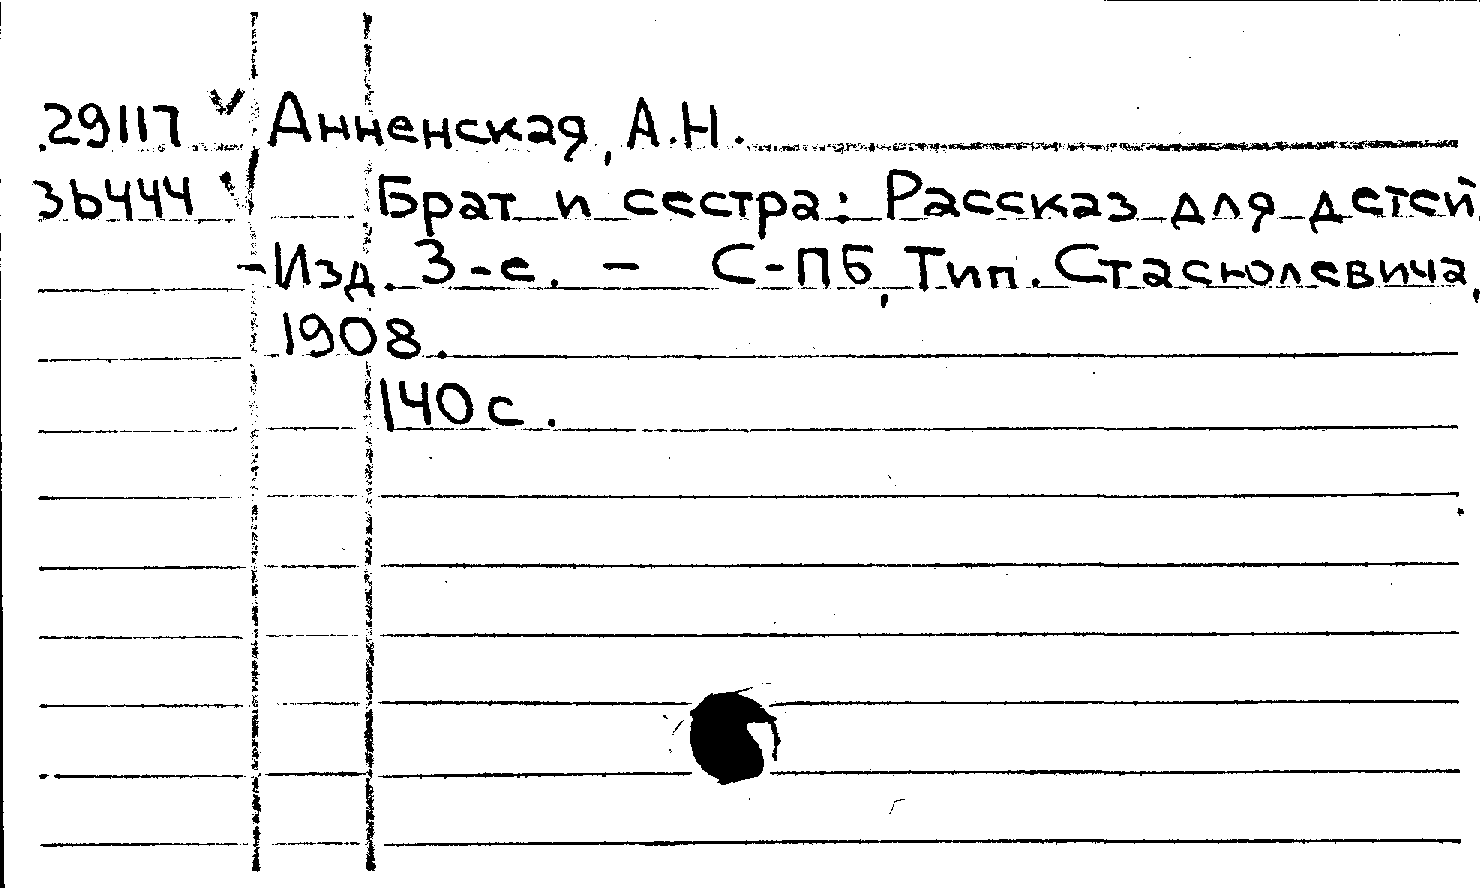 29117 V Анненская, А.Н.
36444 V Брат и сестра: Рассказ для детей.
-Изд. 3-е. - С-ПБ, Тип. Стасюлевича,
1908.
140 с.